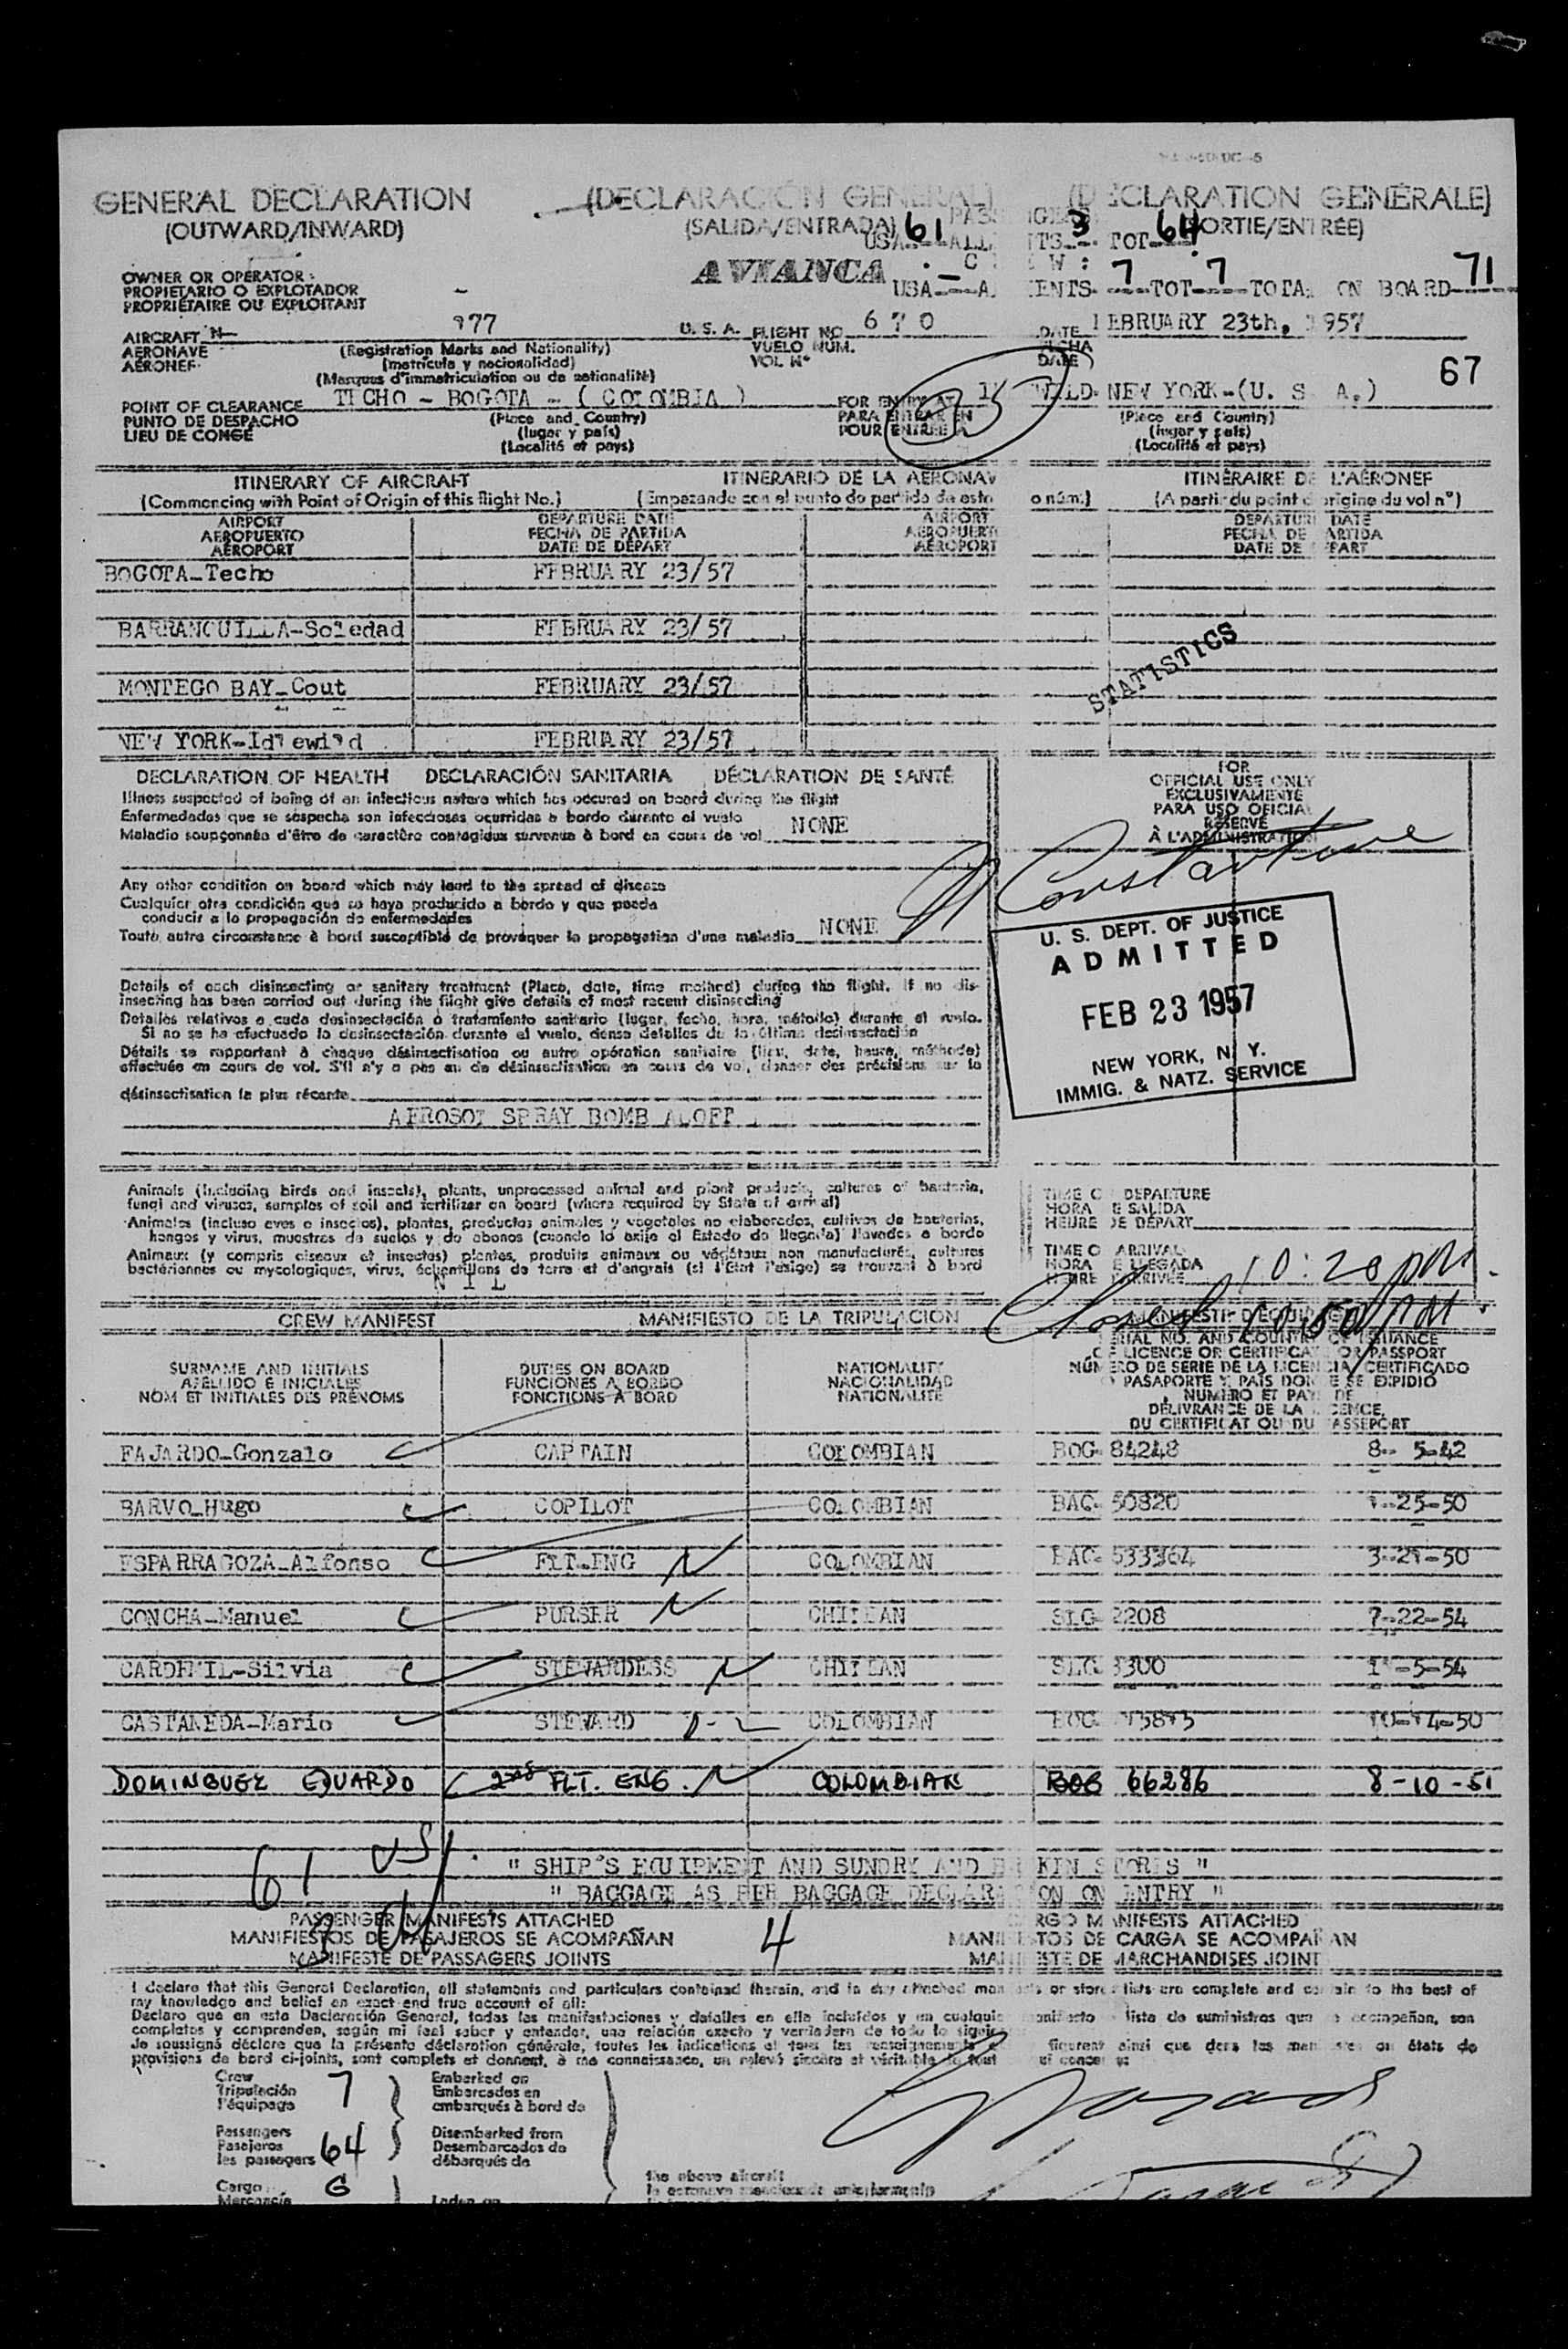 GENERAL DECLARATION (DECLARACIÓN GENERAL) (DECLARATION GENERALE)
(OUTWARD/INWARD) (SALIDA/ENTRADA) 61 3 64 (SORTIE/ENTRÉE)
USA ALIENTS TOT
OWNER OR OPERATOR AVIANCA
PROPIETARIO O EXPLOTADOR USA 7 TOT 7 TOTAL ON BOARD 71
PROPRIÉTAIRE OU EXPLOITANT
AIRCRAFT N 977 U. S. A. FLIGHT NO. 670 DATE FEBRUARY 23th, 1957
AÉRONAVE (Registration Marks and Nationality) VUELO NUM. FECHA
AÉRONEF (matrícula y nacionalidad) VOL Nº DATE
(Marques d'immatriculation ou de nationalité) 67
POINT OF CLEARANCE TECHO - BOGOTA - ( COLOMBIA ) FOR ENTRY AT IDLEWILD NEW YORK-(U. S. A.)
PUNTO DE DESPACHO (Place and Country) PARA ENTRAR EN (Place and Country)
LIEU DE CONGÉ (lugar y país) POUR ENTRÉE A (lugar y país)
(Localité et pays) (Localité et pays)
ITINERARY OF AIRCRAFT ITINERARIO DE LA AERONAV ITINÉRAIRE DE L'AÉRONEF
(Commencing with Point of Origin of this flight No.) (Empezando con el punto de partida de este o núm.) (A partir du point d'origine du vol nº)
AIRPORT DEPARTURE DATE AIRPORT DEPARTURE DATE
AEROPUERTO FECHA DE PARTIDA AEROPUERTO FECHA DE PARTIDA
AÉROPORT DATE DE DÉPART AÉROPORT DATE DE DÉPART
BOGOTA-Techo FEBRUARY 23/57
BARRANQUILLA-Soledad FEBRUARY 23/57
STATISTICS
MONTEGO BAY-Cout FEBRUARY 23/57
NEW YORK-Idlewild FEBRUARY 23/57
DECLARATION OF HEALTH DECLARACIÓN SANITARIA DÉCLARATION DE SANTÉ
Illness suspected of being of an infectious nature which has occured on board during the flight
Enfermedades que se sospecha son infecciosas ocurridas a bordo durante el vuelo
Maladie soupçonnée d'être de caractère contagieux survenue à bord en cours de vol NONE
FOR
OFFICIAL USE ONLY
EXCLUSIVAMENTE
PARA USO OFICIAL
RÉSERVÉ
À L'ADMINISTRATION
Constantine
Any other condition on board which may lead to the spread of disease
Cualquier otra condición que se haya producido a bordo y que pueda
conducir a la propagación de enfermedades
Toute autre circonstance à bord susceptible de provoquer la propagation d'une maladie NONE
U. S. DEPT. OF JUSTICE
ADMITTED
FEB 23 1957
NEW YORK, N. Y.
IMMIG. & NATZ. SERVICE
Details of each disinsecting or sanitary treatment (Place, date, time method) during the flight. If no dis-
insecting has been carried out during the flight give details of most recent disinsecting
Detalles relativos a cada desinsectación o tratamiento sanitario (lugar, fecha, hora, método) durante el vuelo.
Si no se ha efectuado la desinsectación durante el vuelo, dense detalles de la última desinsectación
Détails se rapportant à chaque désinsectisation ou autre opération sanitaire (lieu, date, heure, méthode)
effectuée en cours de vol. S'il n'y a pas eu de désinsectisation en cours de vol, donner des précisions sur la
désinsectisation la plus récente
AEROSOL SPRAY BOMB ALOFT
Animals (including birds and insects), plants, unprocessed animal and plant products, cultures of bacteria,
fungi and viruses, samples of soil and fertilizer on board (where required by State of arrival)
Animales (incluso aves e insectos), plantas, productos animales y vegetales no elaborados, cultivos de bacterias,
hongos y virus, muestras de suelos y de abonos (cuando lo exija el Estado de llegada) llevados a bordo
Animaux (y compris oiseaux et insectes) plantes, produits animaux ou végétaux non manufacturés, cultures
bactériennes ou mycologiques, virus, échantillons de terre et d'engrais (si l'État l'exige) se trouvant à bord
NIL
TIME OF DEPARTURE
HORA DE SALIDA
HEURE DE DÉPART
TIME OF ARRIVAL
HORA DE LLEGADA
HEURE D'ARRIVÉE 10:20 PM
Closed 10:50 PM
CREW MANIFEST MANIFIESTO DE LA TRIPULACION MANIFESTE D'ÉQUIPAGE
SURNAME AND INITIALS DUTIES ON BOARD NATIONALITY
APELLIDO E INICIALES FUNCIONES A BORDO NACIONALIDAD
NOM ET INITIALES DES PRÉNOMS FONCTIONS À BORD NATIONALITÉ
SERIAL NO. AND COUNTRY OF ISSUANCE
OF LICENCE OR CERTIFICATE OR PASSPORT
NÚMERO DE SERIE DE LA LICENCIA, CERTIFICADO
O PASAPORTE Y PAÍS DONDE SE EXPIDIÓ
NUMÉRO ET PAYS DE
DÉLIVRANCE DE LA LICENCE,
DU CERTIFICAT OU DU PASSEPORT
FAJARDO-Gonzalo CAPTAIN COLOMBIAN BOG- 84248 8- 5-42
BARVO-Hugo COPILOT COLOMBIAN BAQ- 50820 -25-50
ESPARRAGOZA-Alfonso FLT-ENG COLOMBIAN BAQ- 533364 3-21-50
CONCHA-Manuel PURSER CHILEAN SLG- 2208 7-22-54
CARDEMIL-Silvia STEWARDESS CHILEAN SLG- 3300 1-5-54
CASTANEDA-Mario STEWARD COLOMBIAN BOG 10-14-50
DOMINGUEZ EDUARDO 2nd FLT. ENG. COLOMBIAN BOG 66286 8-10-51
61 US
" SHIP'S EQUIPMENT AND SUNDRY AND BROKEN STORES "
" BAGGAGE AS PER BAGGAGE DECLARATION ON ENTRY "
PASSENGER MANIFESTS ATTACHED CARGO MANIFESTS ATTACHED
MANIFIESTOS DE PASAJEROS SE ACOMPAÑAN 4 MANIFIESTOS DE CARGA SE ACOMPAÑAN
MANIFESTE DE PASSAGERS JOINTS MANIFESTE DE MARCHANDISES JOINT
I declare that this General Declaration, all statements and particulars contained therein, and in any attached manifests or stores lists are complete and contain to the best of
my knowledge and belief an exact and true account of all:
Declaro que en esta Declaración General, todas las manifestaciones y detalles en ella incluidos y en cualquier manifiesto o lista de suministros que se acompañan, son
completos y comprenden, según mi leal saber y entender, una relación exacta y verdadera de todo lo siguiente
Je soussigné déclare que la présente déclaration générale, toutes les indications et tous les renseignements figurent ainsi que dans les manifestes ou états de
provisions de bord ci-joints, sont complets et donnent, à ma connaissance, un relevé sincère et véritable de tout ce qui concerne:
Crew Embarked on
Tripulación 7 Embarcados en
l'équipage embarqués à bord de
Passengers Disembarked from
Pasajeros 64 Desembarcados de
les passagers débarqués de
Cargo 6 the above aircraft
Mercancía Laden on la aeronave mencionada anteriormente